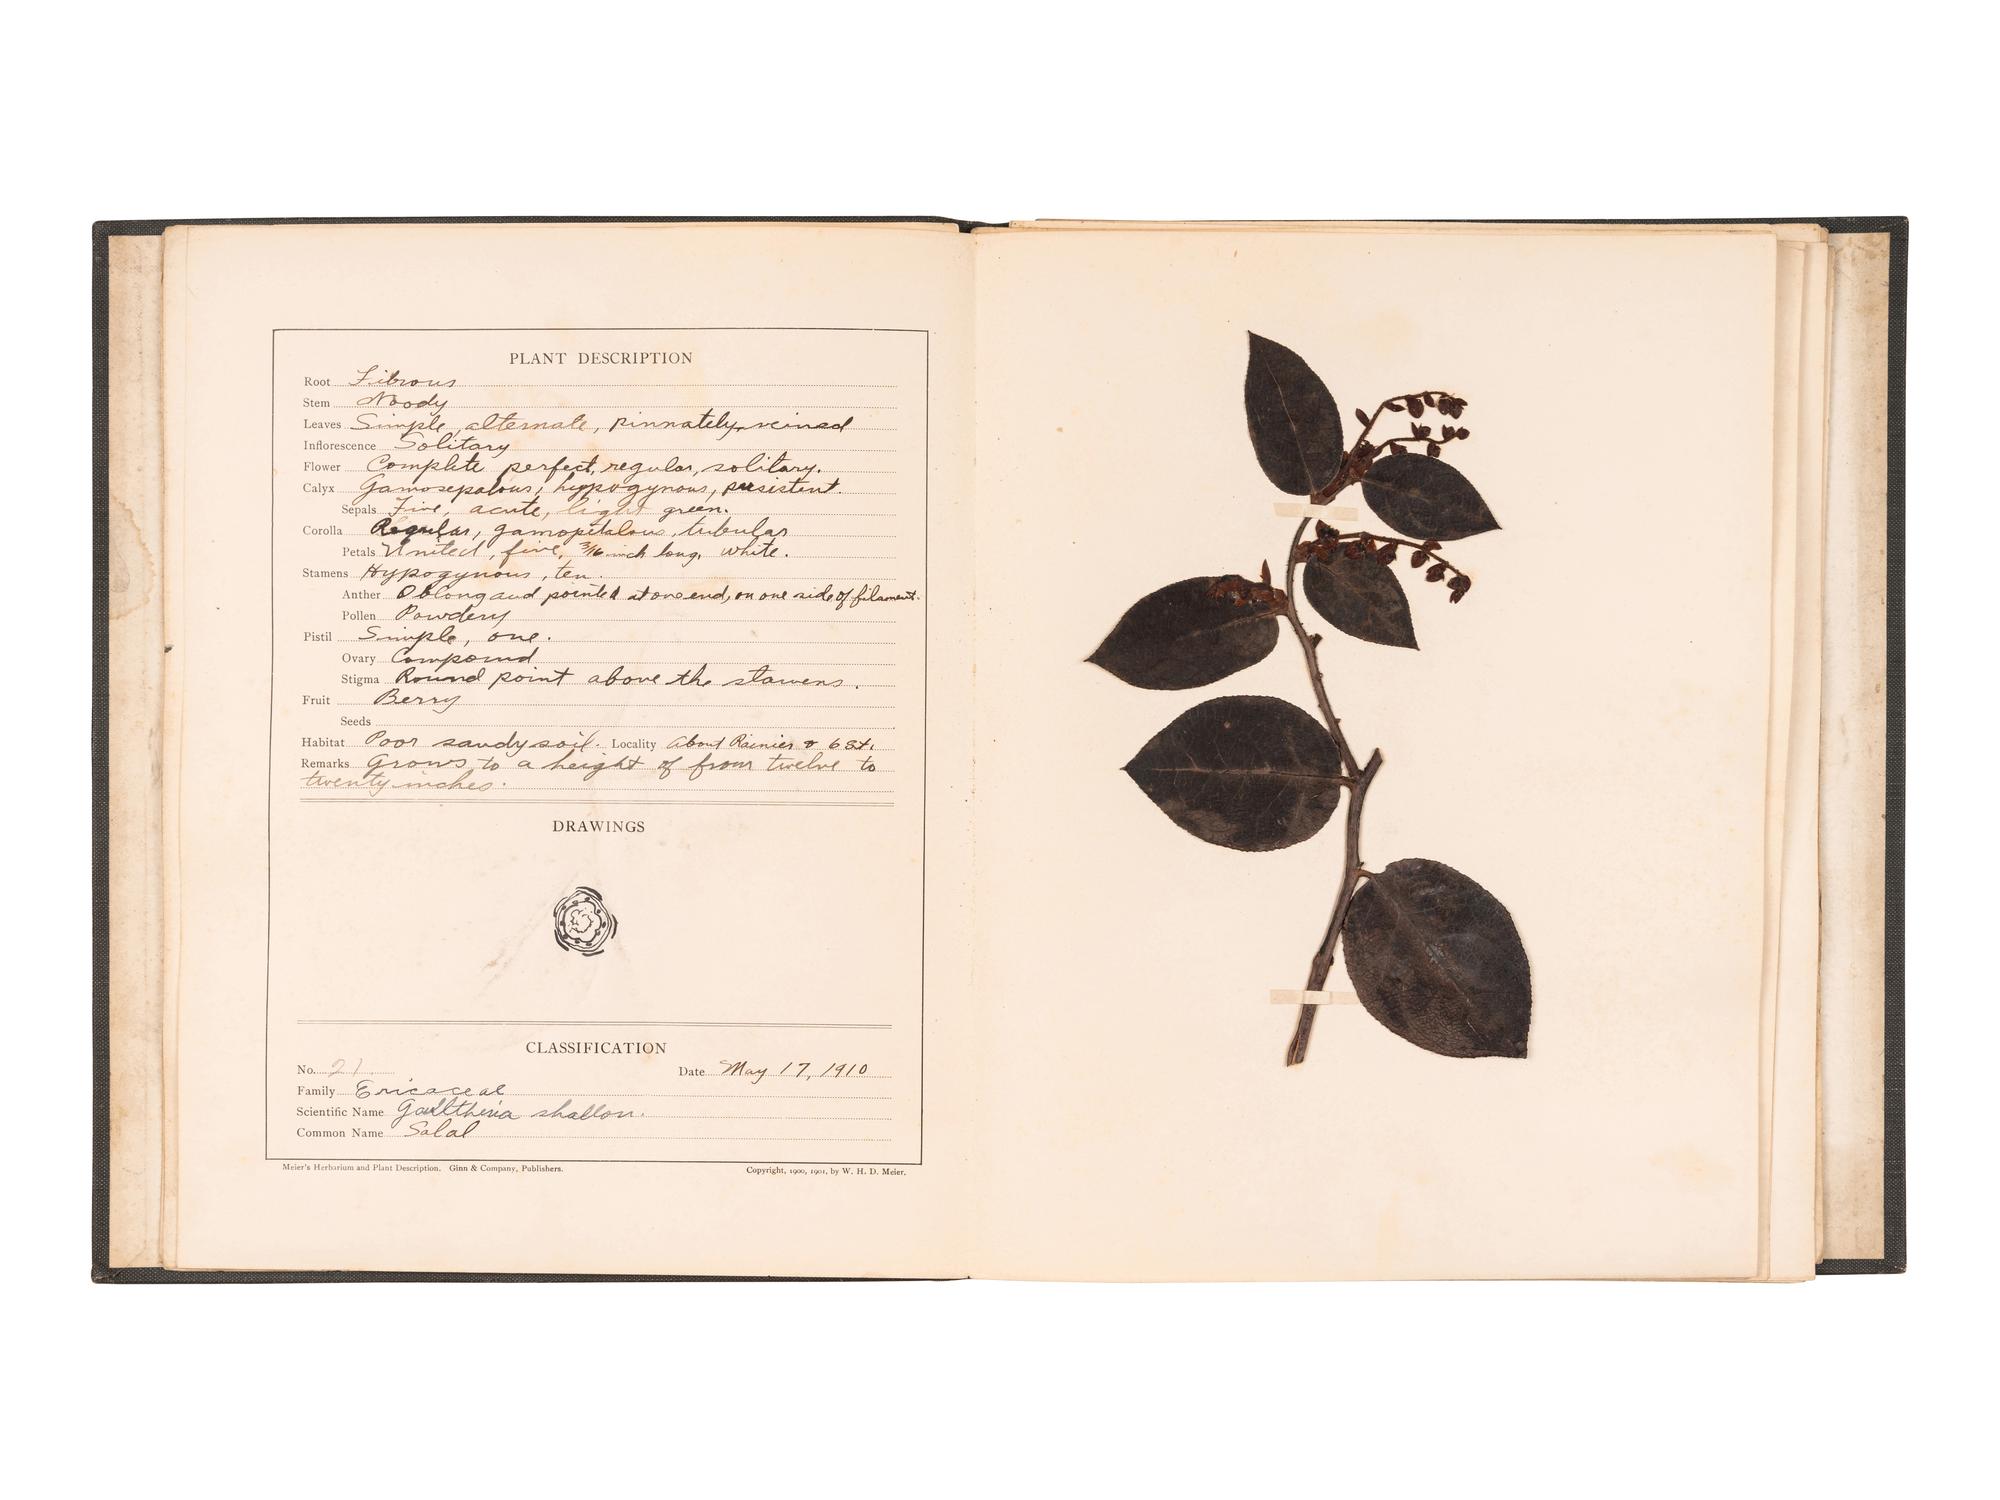 PLANT DESCRIPTION
Root Fibrous
Stem Woody
Leaves Simple, alternate, pinnately-veined
Inflorescence Solitary
Flower Complete, perfect, regular, solitary.
Calyx Gamosepalous, hypogynous, persistent.
Sepals Five, acute, light green.
Corolla Regular, gamopetalous, tubular
Petals United, five, 3/16 inch long, white.
Stamens Hypogynous, ten.
Anther Oblong and pointed at one end, on one side of filament.
Pollen Powdery
Pistil Simple, one.
Ovary Compound
Stigma Round point above the stamens.
Fruit Berry
Seeds
Habitat Poor sandy soil. Locality About Rainier & 68 st.
Remarks Grows to a height of from twelve to
twenty inches.
DRAWINGS
CLASSIFICATION
No. 21. Date May 17, 1910
Family Ericaceae
Scientific Name Gaultheria shallon.
Common Name Salal
Meier's Herbarium and Plant Description. Ginn & Company, Publishers. Copyright, 1900, 1901, by W. H. D. Meier.